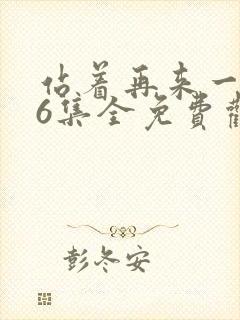 站着再来一
6集全免费観
彭冬安